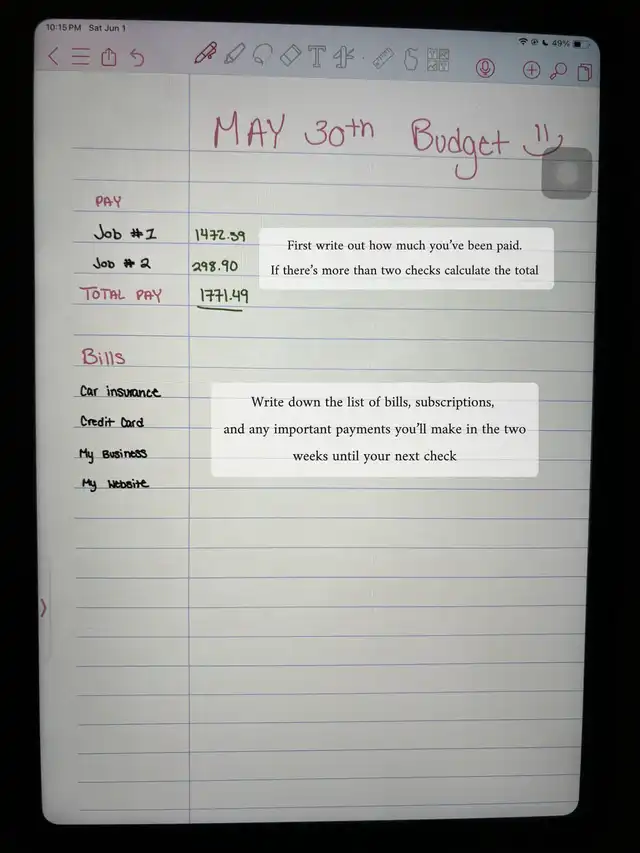 10:15 PM Sat Jun 1
49%
MAY 30th Budget
PAY
Job #1 1472.59
First write out how much you've been paid.
If there's more than two checks calculate the total
Job #2 298.90
TOTAL PAY 1771.49
Bills
Car insurance
Credit Card
My Business
My Website
Write down the list of bills, subscriptions,
and any important payments you'll make in the two
weeks until your next check